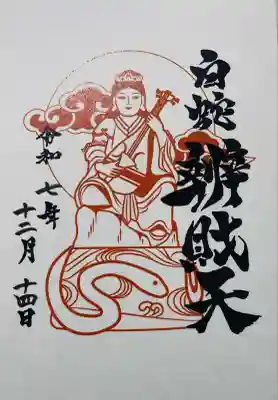 白蛇辨財天
令和七年
十二月十四日